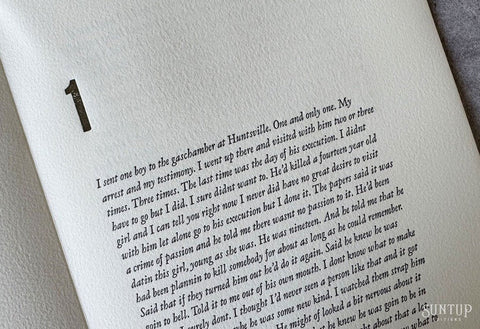 1
I sent one boy to the gaschamber at Huntsville. One and only one. My
arrest and my testimony. I went up there and visited with him two or three
times. Three times. The last time was the day of his execution. I didnt
have to go but I did. I sure didnt want to. He'd killed a fourteen year old
girl and I can tell you right now I never did have no great desire to visit
with him let alone go to his execution but I done it. The papers said it was
a crime of passion and he told me there wasnt no passion to it. He'd been
datin this girl, young as she was. He was nineteen. And he told me that he
had been plannin to kill somebody for about as long as he could remember.
Said that if they turned him out he'd do it again. Said he knew he was
goin to hell. Told it to me out of his own mouth. I dont know what to make
surely dont. I thought I'd never seen a person like that and it got
he was some new kind. I watched them strap him
He might of looked a bit nervous about it
he knew he was goin to be in
that about a lot
SUNTUP
EDITIONS